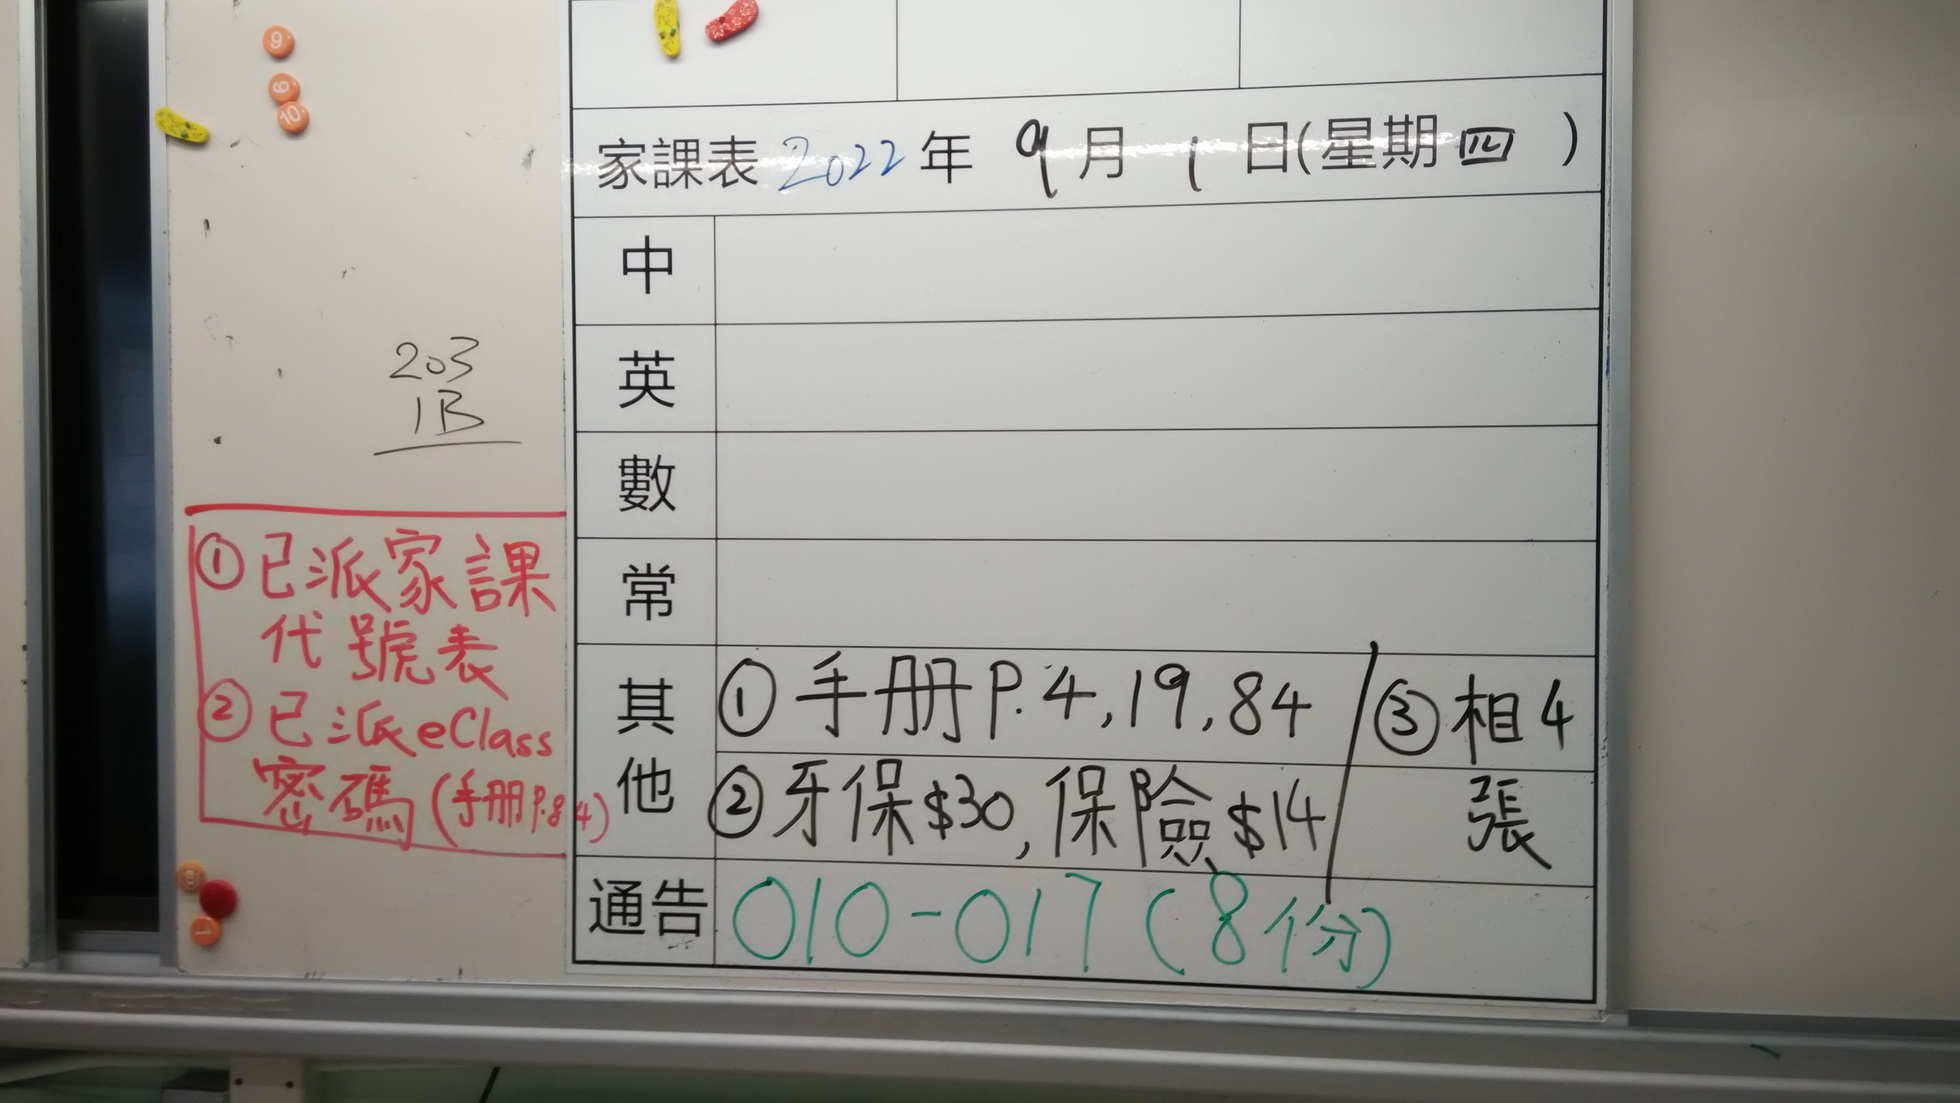 9
6
10
家課表 2022年 9月 1日(星期四)
中
英
數
常
其他
① 手册 P.4,19,84
② 牙保$30,保險$14
③ 相4
張
通告
010-017(8份)
203
1B
① 已派家課
代號表
② 已派eClass
密碼(手册P.84)